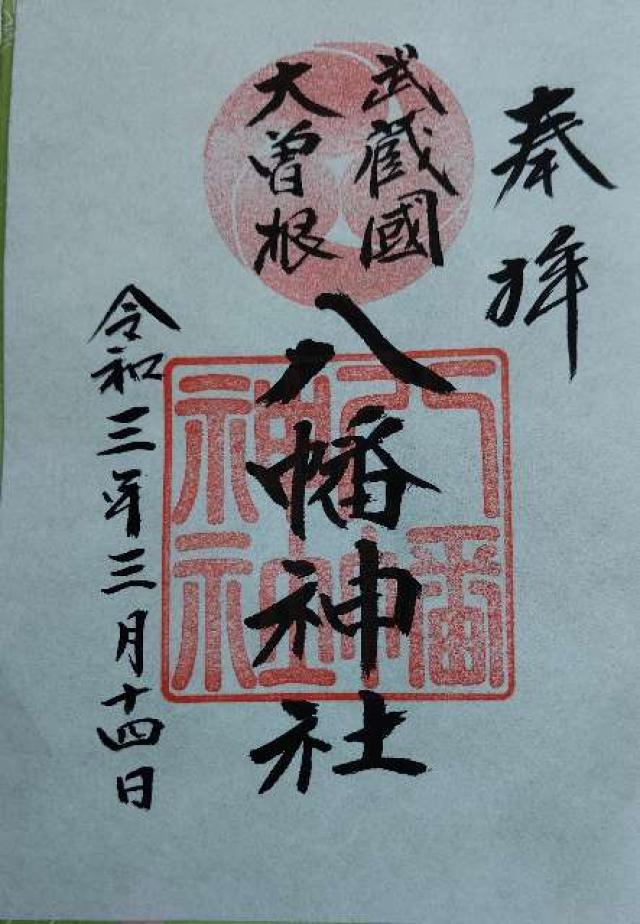 奉拝
武蔵國
大曽根
八幡神社
八幡神社
令和三年三月十四日